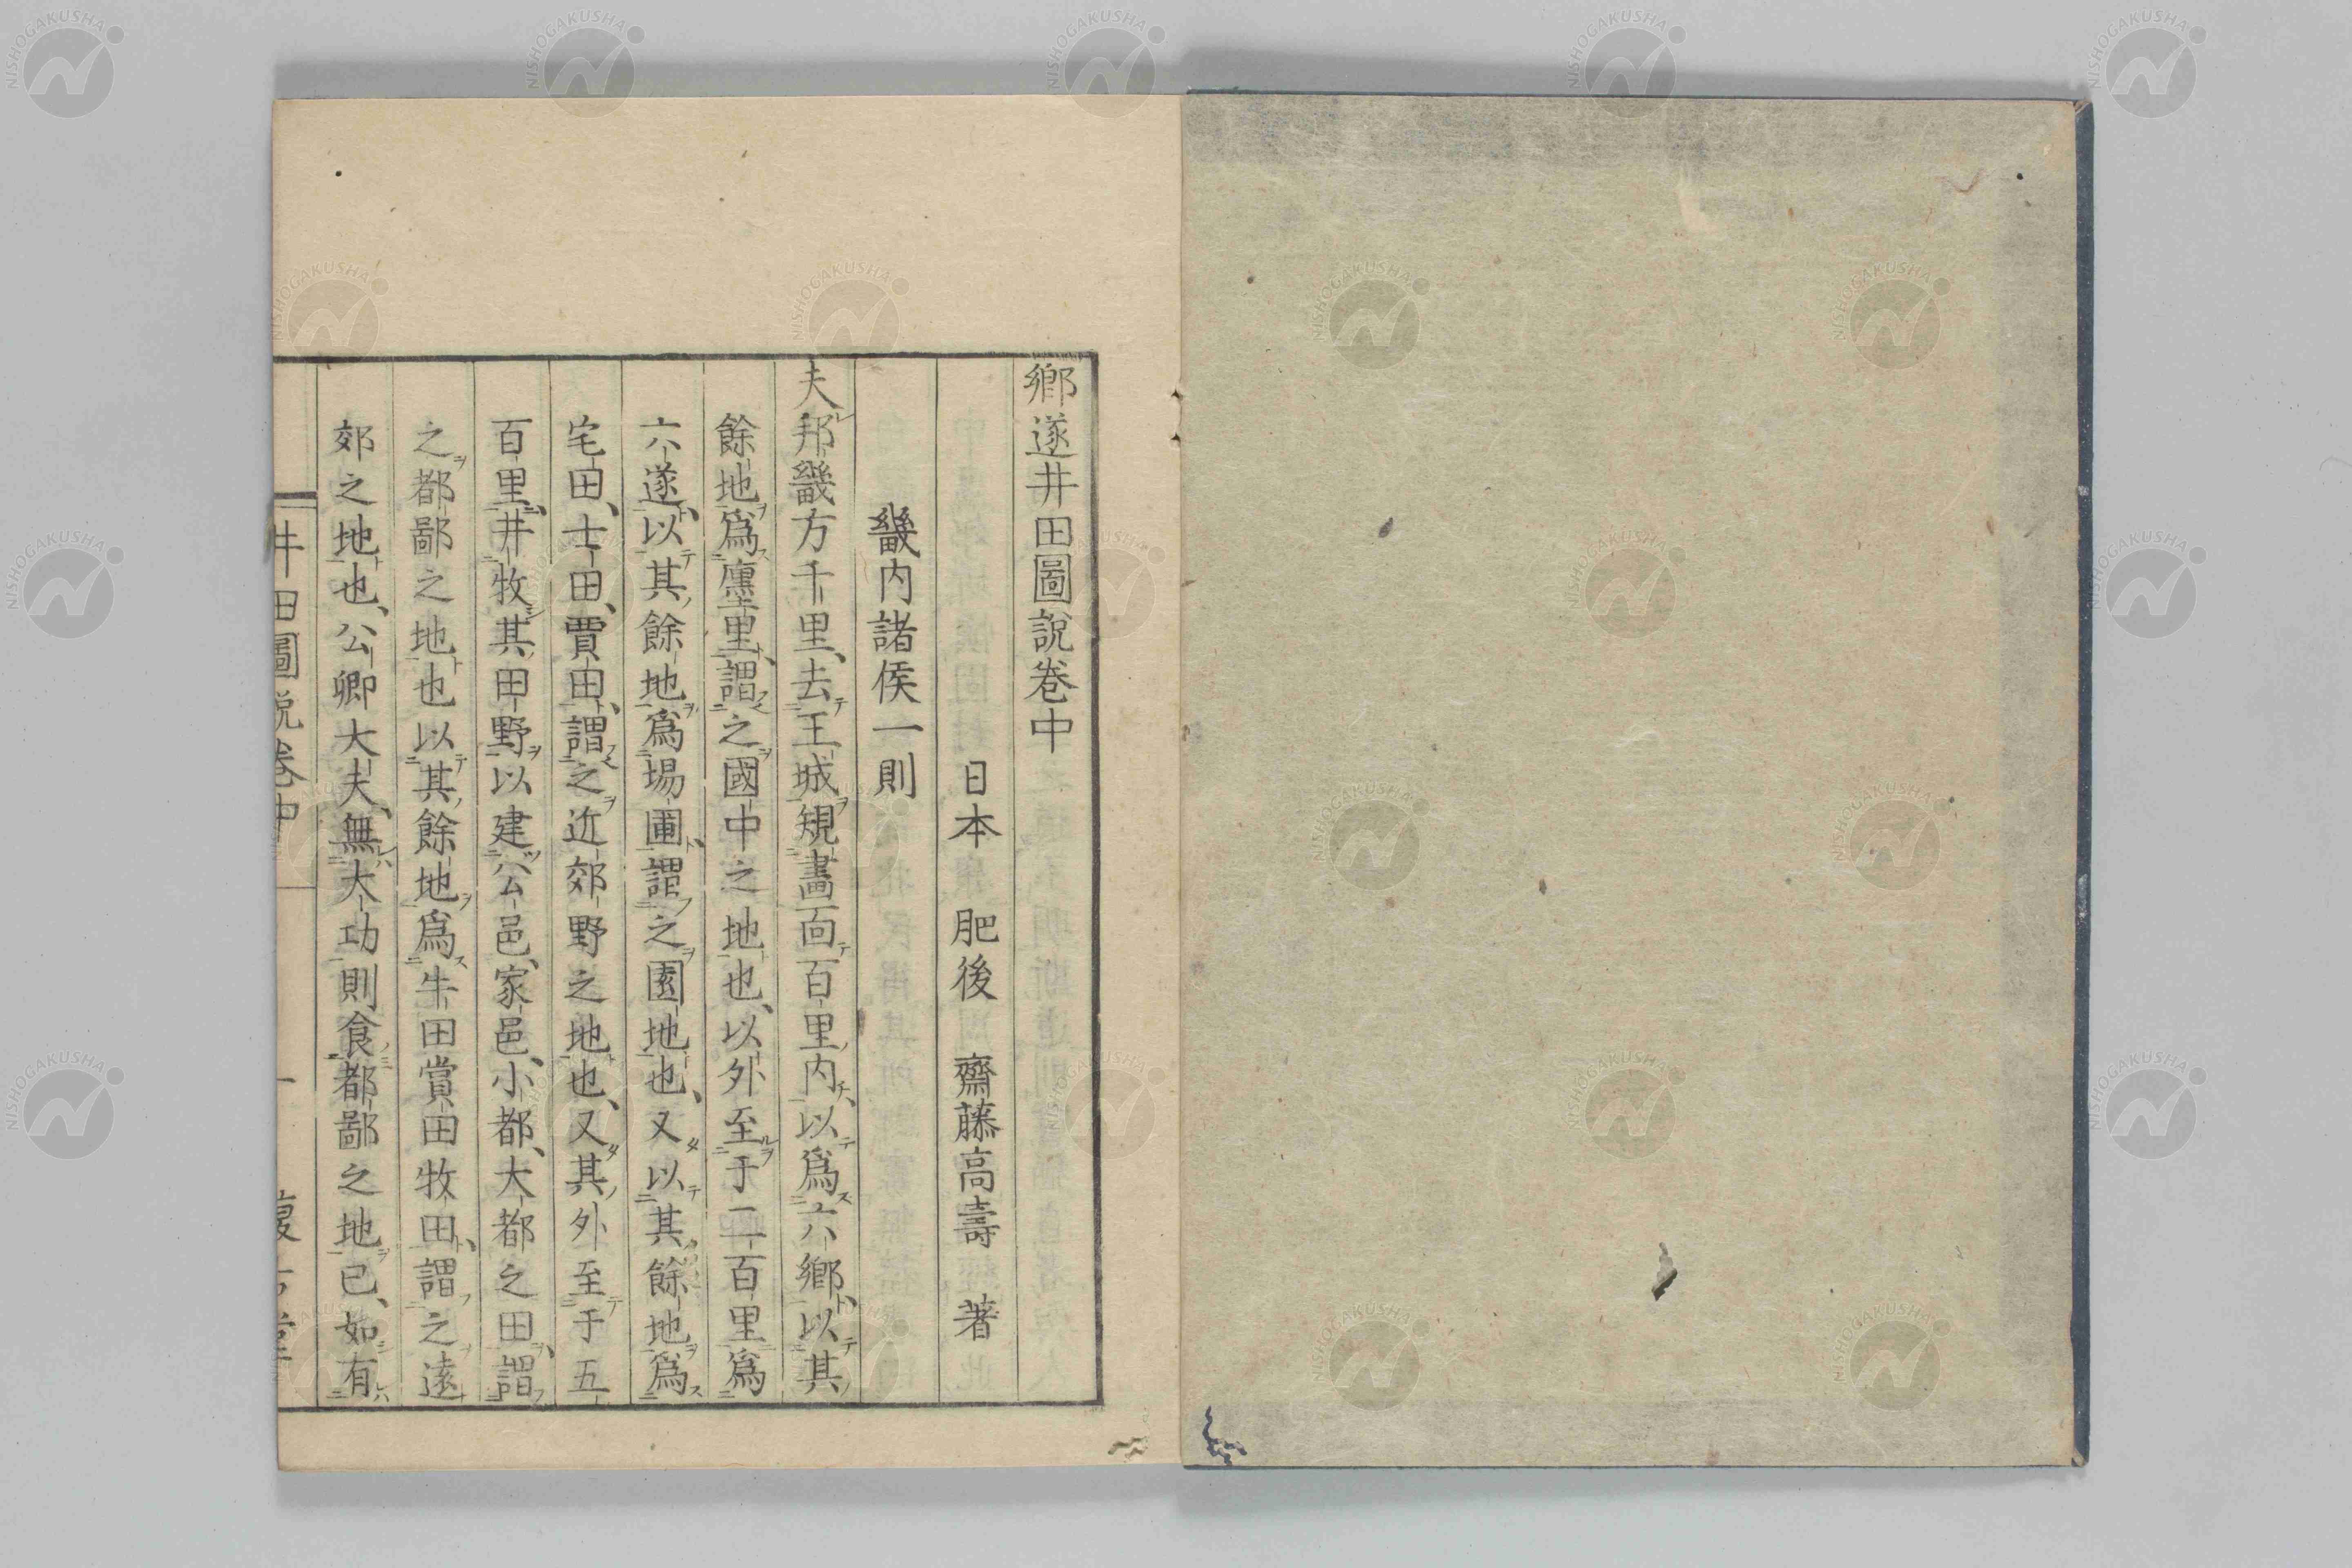 鄉遂井田圖說卷中
日本 肥後 齋藤高壽 著
畿內諸侯一則
夫邦畿方千里、去王城規畫面百里內、以爲六鄉、以其
餘地爲廛里、謂之國中之地也、以外至于二百里爲
六遂、以其餘地爲場圃、謂之園地也、又以其餘地爲
宅田、士田、賈田、謂之近郊野之地也、又其外至于五
百里、井牧其田野以建公邑、家邑、小都、大都之田、謂
之都鄙之地也以其餘地爲牛田賞田牧田、謂之遠
郊之地也、公卿大夫、無大功則食都鄙之地已、如有
井田圖說卷中 一
NISHOGAKUSHA